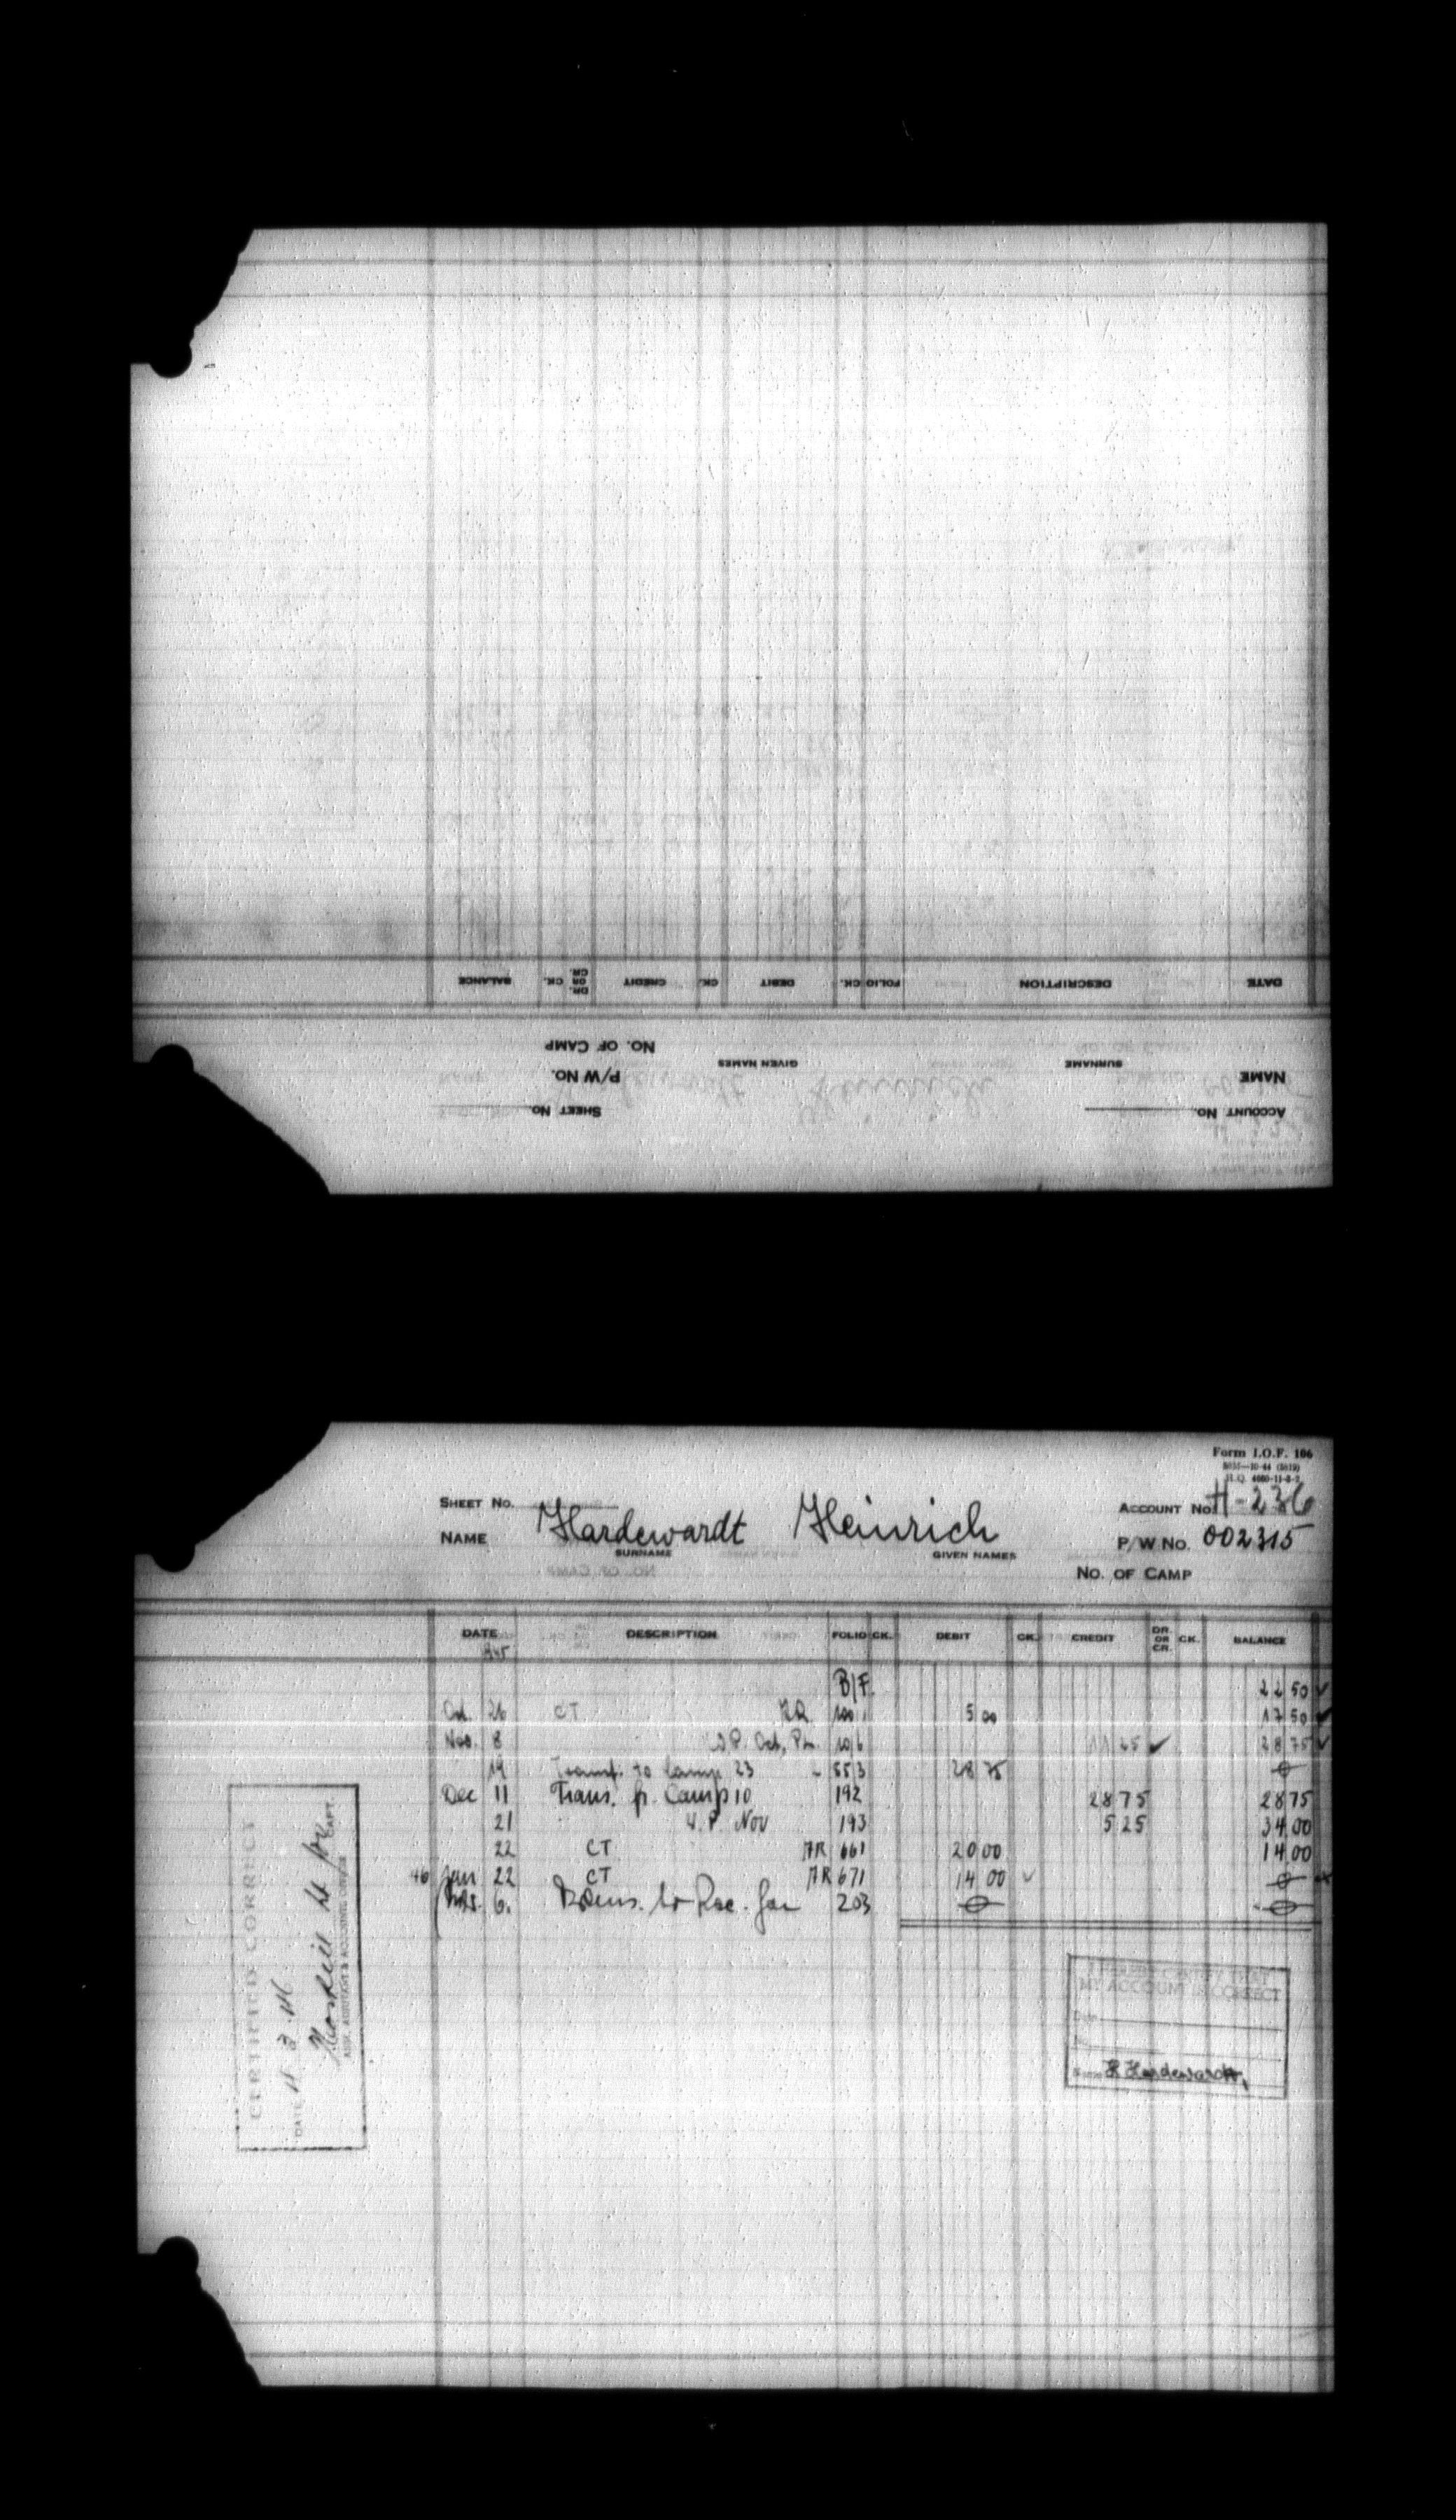 DATE DESCRIPTION FOLIO CK. DEBIT CK. CREDIT DR. OR CR. CK. BALANCE
NO. OF CAMP
NAME SURNAME GIVEN NAMES P/W NO.
ACCOUNT NO. SHEET NO.
Form I.O.F. 106
H.Q. 4660-11-8-2
SHEET NO. ACCOUNT NO. H-236
NAME Hardewardt Heinrich P/W NO. 002315
SURNAME GIVEN NAMES
NO. OF CAMP
DATE DESCRIPTION FOLIO CK. DEBIT CK. CREDIT DR. OR CR. CK. BALANCE
1945
B/F. 22 50 ✓
Oct. 26 CT 5 00 17 50 ✓
Nov. 8 W.P. Oct, 10/6 ✓ 28 75 ✓
19 Transf. to Camp 23 553 28 75 0
Dec 11 Trans. fr. Camp 10 192 28 75 28 75
21 W.P. Nov 193 5 25 34 00
22 CT AR 661 20 00 14 00
46 Jan 22 CT AR 671 14 00 ✓ 0
6. Trans. to Rec. 203 0 0
CERTIFIED CORRECT
DATE 11.3.46
CAPT.
I HEREBY CERTIFY THAT
MY ACCOUNT IS CORRECT
Date
H Hardewardt,